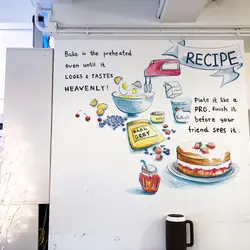 RECIPE
Bake in the preheated
oven until it
LOOKS & TASTES
HEAVENLY!
Plate it like a
PRO, finish it
before your
friend sees it.
EARL
GREY